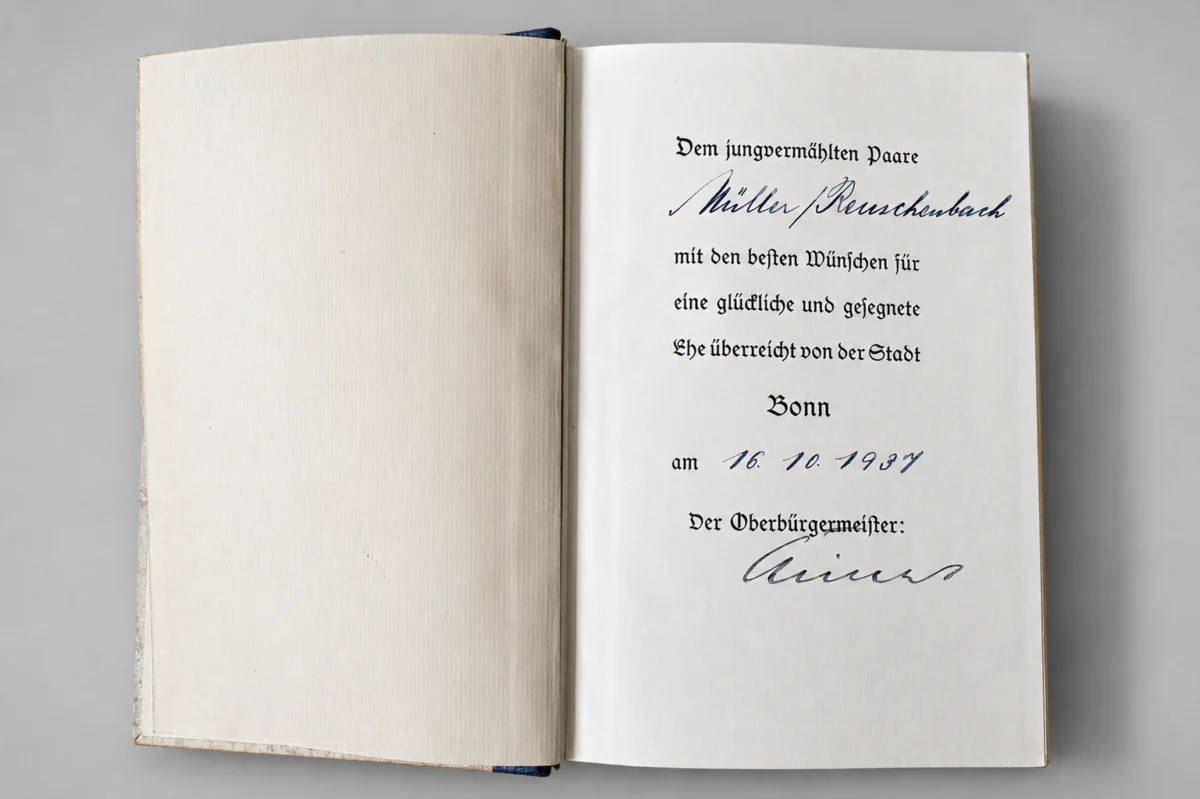 Dem jungvermählten Paare
Müller/Reuschenbach
mit den besten Wünschen für
eine glückliche und gesegnete
Ehe überreicht von der Stadt
Bonn
am 16. 10. 1937
Der Oberbürgermeister: